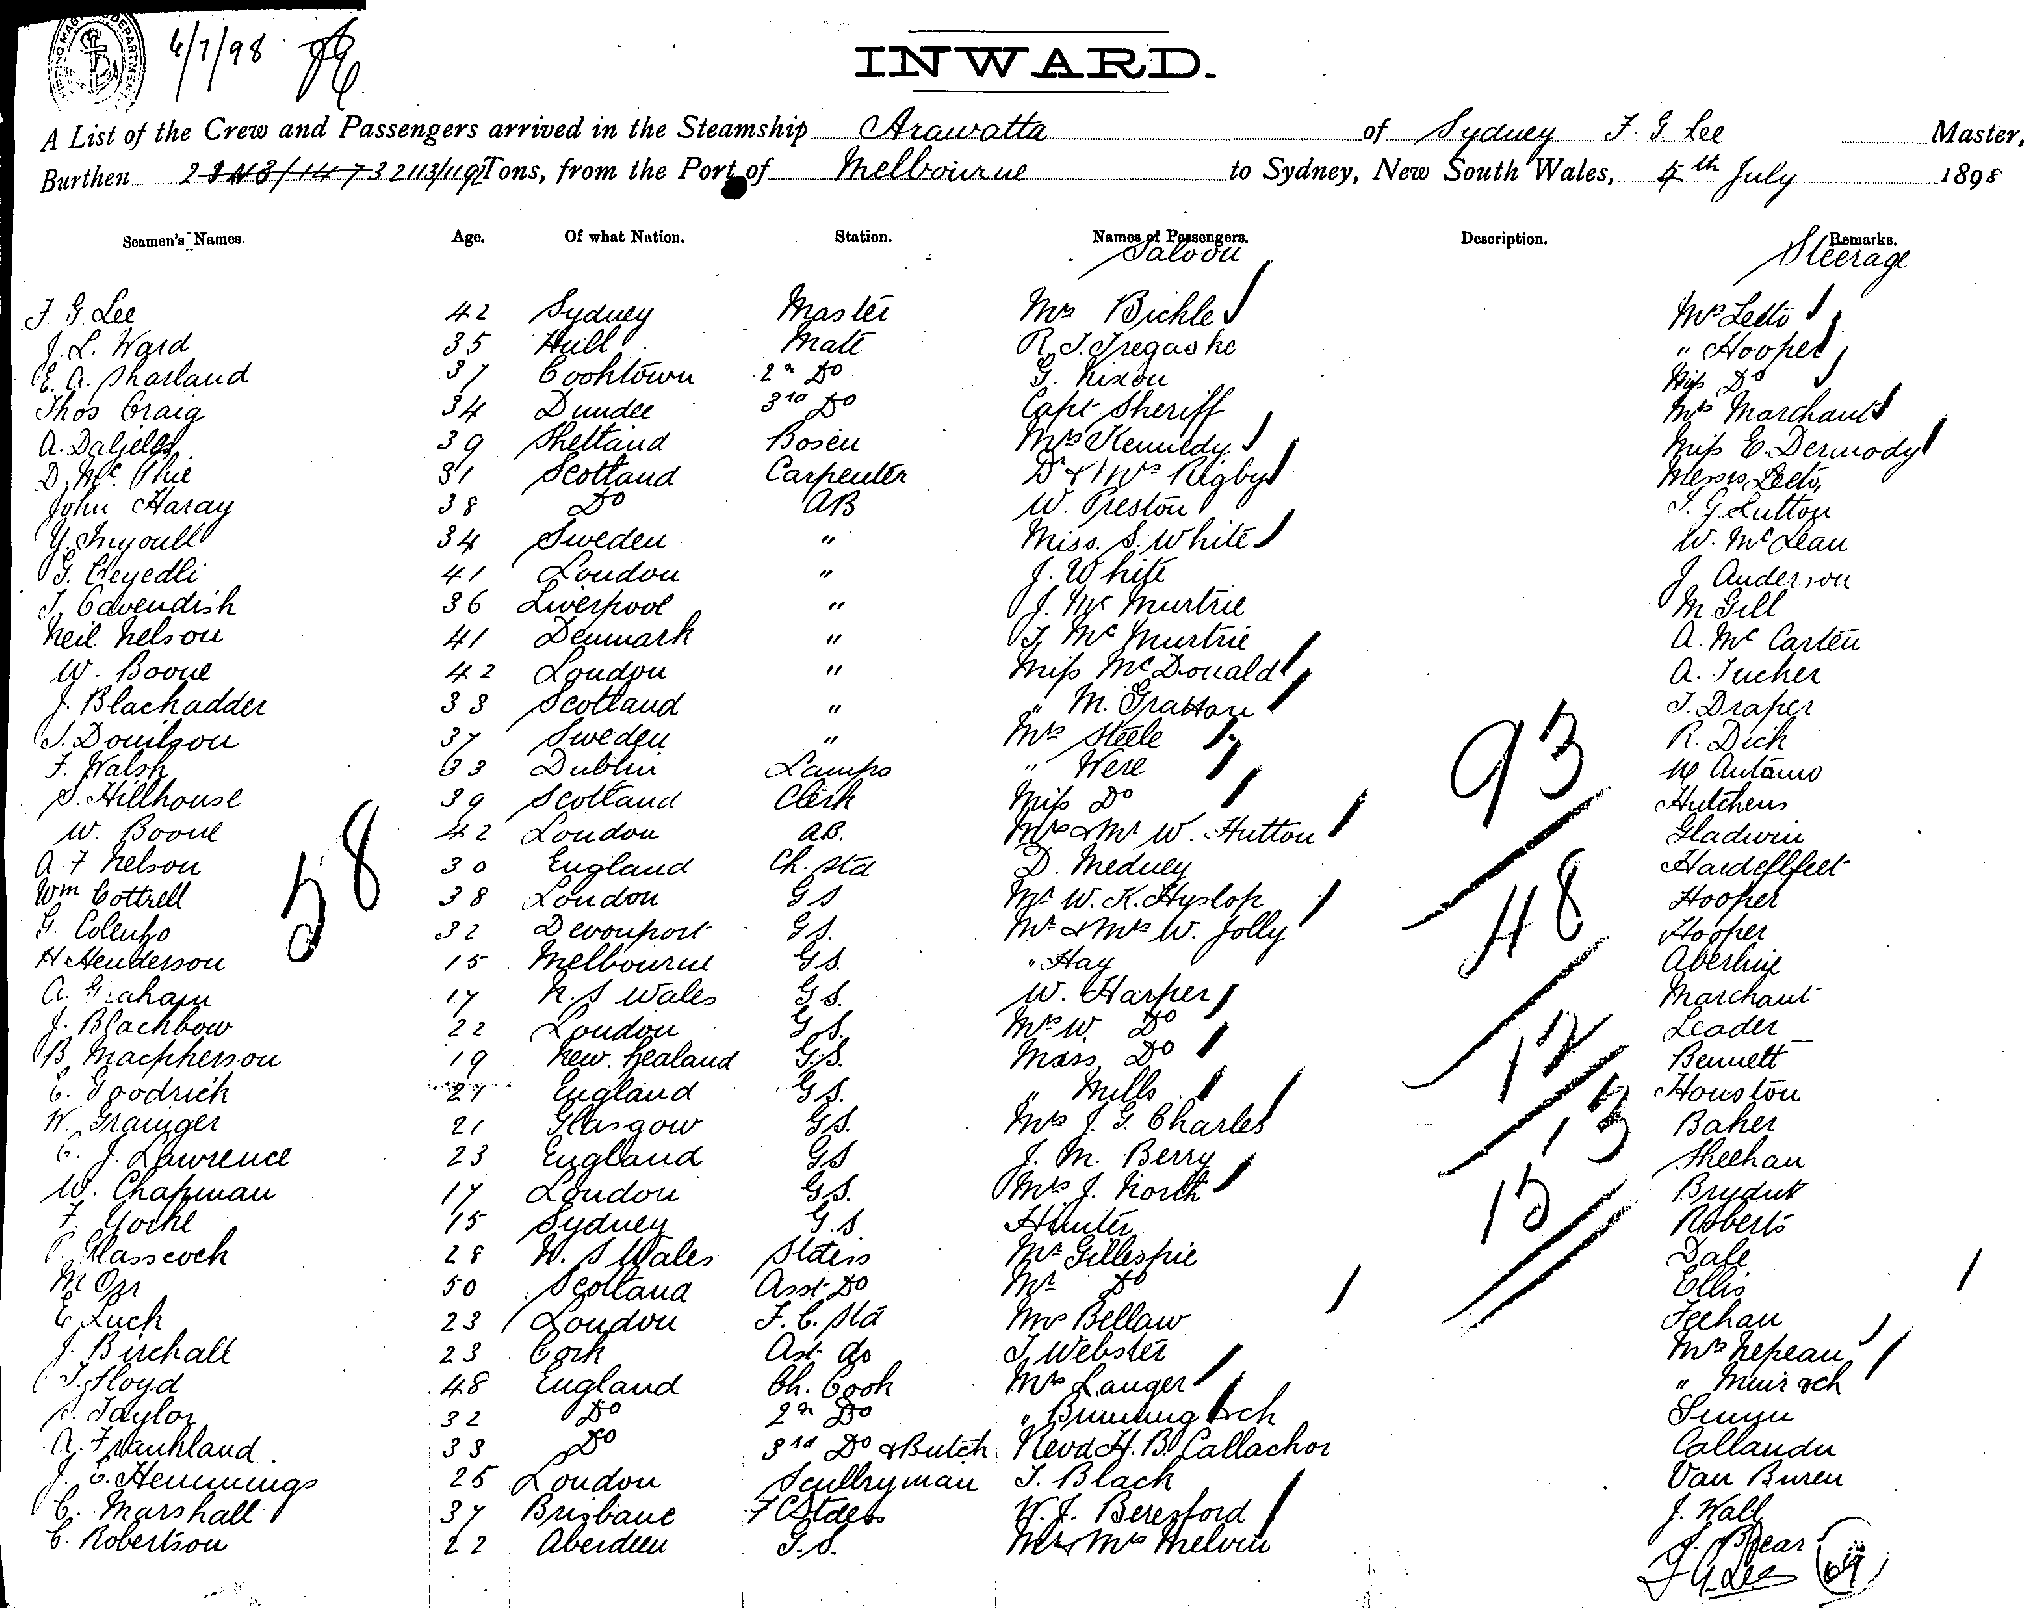 4/7/98
INWARD.
A List of the Crew and Passengers arrived in the Steamship Arawatta of Sydney F. G. Lee Master,
Burthen 2113/1192 Tons, from the Port of Melbourne to Sydney, New South Wales, 4th July 1898
Seamen's Names. Age. Of what Nation. Station. Names of Passengers. Description. Remarks.
Saloon Steerage
F. G. Lee 42 Sydney Master Mrs Bickle Mrs Letto
J. L. Ward 35 Hull Mate R. J. Tregaske " Hooper
E. A. Sharland 37 Cooktown 2nd Do G. Nixon Miss Do
Thos Craig 34 Dundee 3rd Do Capt Sheriff Mrs Marchant
A. Dalziell 39 Shetland Bosen Mrs Kennedy Miss E. Dermody
D. Mc Phie 31 Scotland Carpenter Dr & Mrs Rigby Messrs Letto
John Haray 38 Do AB W. Preston J. G. Lutton
34 Sweden " Miss S. White W. McLean
G. 41 London " J. White J. Anderson
J. Cavendish 36 Liverpool " J. Mc Murtrie M Gill
Neil Nelson 41 Denmark " T. Mc Murtrie A. Mc Carten
W. Boone 42 London " Miss McDonald A. Tucker
J. Blackadder 33 Scotland " " M. Grattan T. Draper
J. Donilson 37 Sweden " Mrs Steele R. Dick
F. Walsh 63 Dublin Lamps " Were
S. Hillhouse 39 Scotland Clerk Miss Do Hutchens
W. Boone 42 London AB. Mrs & Mr W. Hutton Gladwin
A. F Nelson 30 England Ch. Std D. Medney
Wm Cottrell 38 London G S Mr W. K. Hyslop Hooper
G. Colenzo 32 Devonport G S. Mr & Mrs W. Jolly Hooper
H Henderson 15 Melbourne G S. " Hay Aberline
A. Graham 17 N. S Wales G S. W. Harper Marchant
J. Blackbow 22 London G. S. Mrs W. Do Leader
B. Macpherson 19 New Zealand G S. Mass Do Bennett
C. Goodrich 27 England G S. " Mills Houston
W. Grainger 21 Glasgow G S. Mrs J. G. Charles Baker
C. J. Lawrence 23 England G S J. M. Berry Sheehan
W. Chapman 17 London G S. Mrs J. North
F. Yorke 15 Sydney G. S. Hunter Roberts
P. Glasscock 28 N. S Wales Stdess Mr Gillespie Dale
M Orr 50 Scotland Asst Do Mrs Do Ellis
E Luck 23 London F. C. Std Mrs Bellaw Feehan
J. Birchall 23 Cork Ast do T. Webster Mrs Nepean
J. Floyd 48 England Ch. Cook Mrs Langer " Muir & ch
S. Taylor 32 Do 2nd Do " Brunning & ch
A. Frankland 33 Do 3rd Do & Butch Revd H. B. Callachor
J. C. Hemmings 25 London Scullryman T. Black Van Buren
C. Marshall 37 Brisbane F C Stdess W. J. Beresford J. Wall
C. Robertson 22 Aberdeen G. S. Mr & Mrs Melvin J. Bear
F G Lee 64
58
93
48
12
13
15